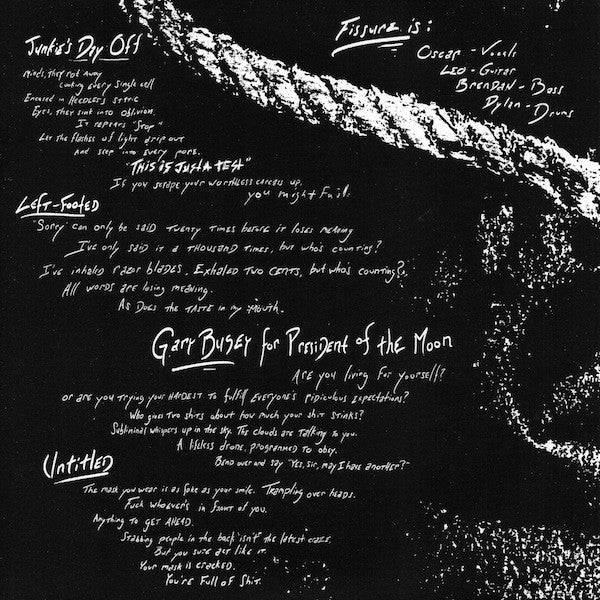 Junkie's Day Off
Minds, they rot away
Coating every single cell
Encased in needle's static
Eyes, they sink into oblivion.
It repeats "Stop"
Let the flashes of light drip out
And seep into every pore.
"This is just a test"
If you scrape your worthless carcass up,
you might fail.
Left-Footed
"Sorry" can only be said twenty times before it loses meaning
I've only said it a thousand times, but who's counting?
I've inhaled razor blades. Exhaled two cents, but who's counting?
All words are losing meaning.
As does the taste in my mouth.
Gary Busey for President of the Moon
Are you living for yourself?
or are you trying your hardest to fulfill everyone's ridiculous expectations?
Who gives two shits about how much your shit stinks?
Subliminal whispers up in the sky. The clouds are talking to you.
A lifeless drone, programmed to obey.
Bend over and say "Yes, sir, may I have another?"
Untitled
The mask you wear is as fake as your smile. Trampling over heads.
Fuck whoever's in front of you.
Anything to get ahead.
Stabbing people in the back isn't the latest craze.
But you sure act like it.
Your mask is cracked.
You're full of shit.
Fissure is:
Oscar - Vocals
Leo - Guitar
Brendan - Bass
Dylan - Drums